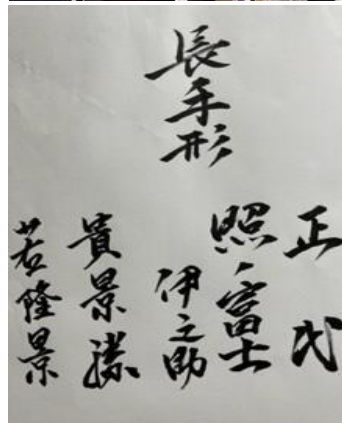 長手形
正代
照ノ富士
伊之助
貴景勝
若隆景